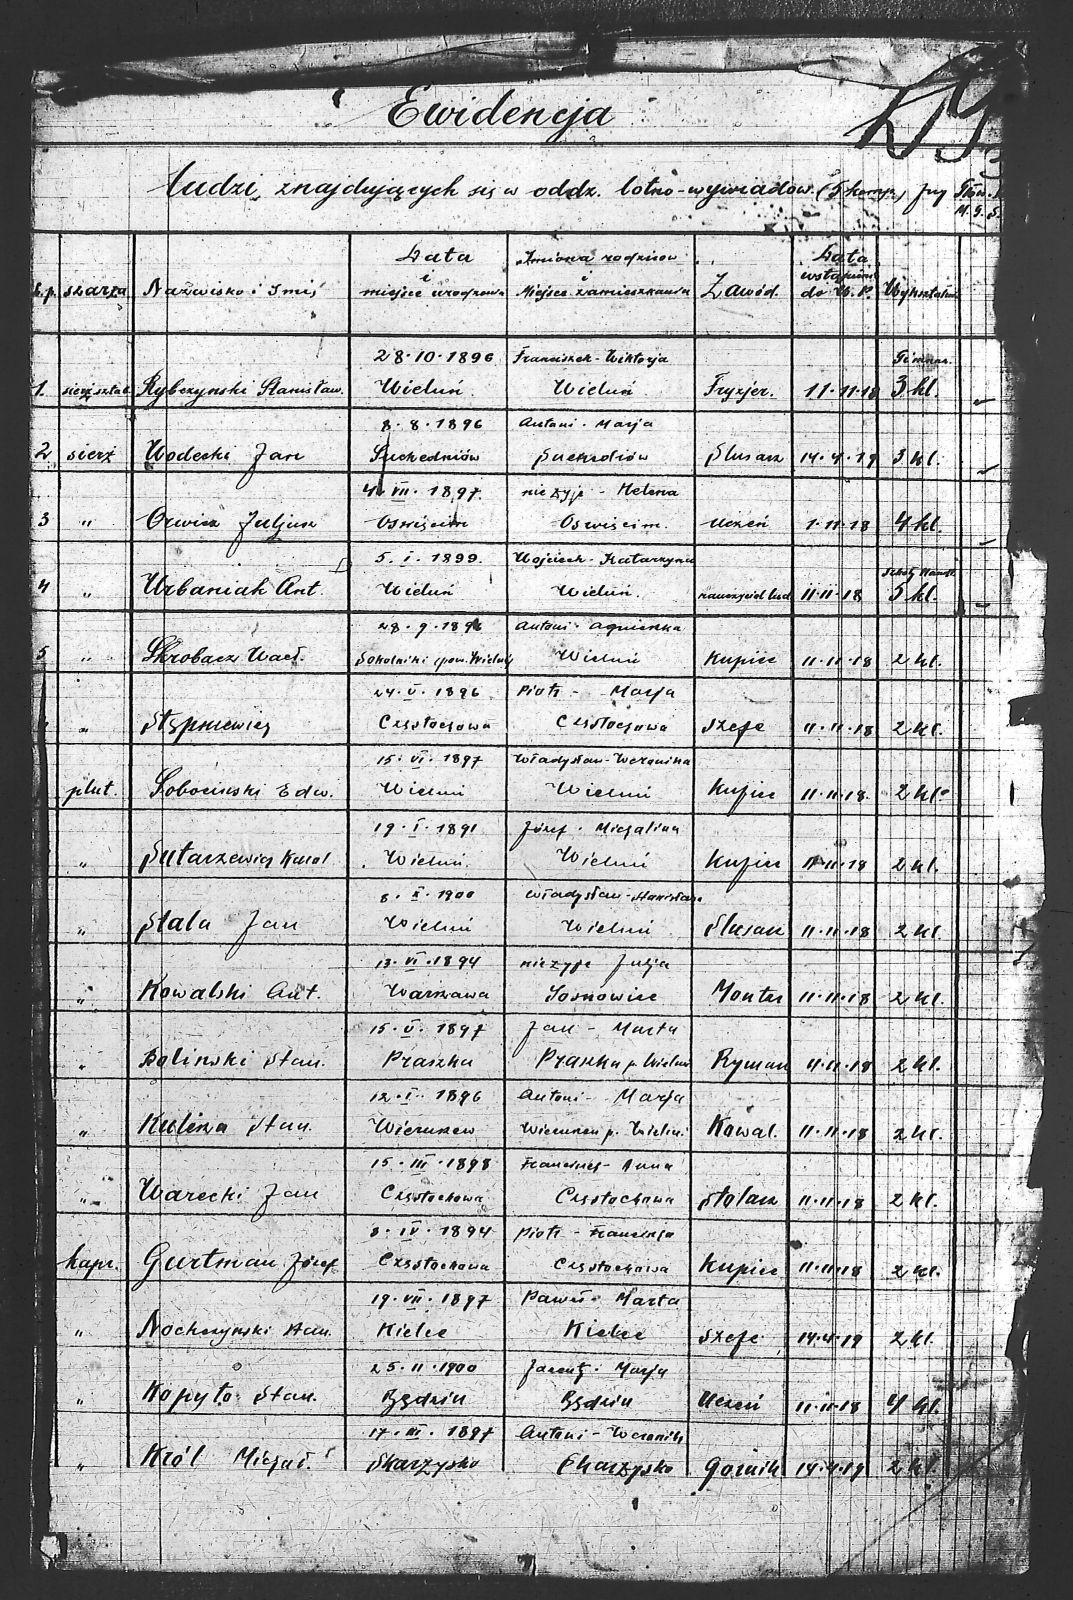 Ewidencja
ludzi znajdujących się w oddz. lotno-wywiadow. (5 komp.) przy Głów.
M. G. S.
L.p. szarża Nazwisko i Imię Data i miejsce urodzenia Imiona rodziców i Miejsce zamieszkania Zawód. Data wstąpienia do W. P. Wykształcen
28.10.1896 Franciszek - Wiktorja Gimnaz.
1. sierż.sztab. Rybczynski Stanisław. Wieluń Wieluń Fryzjer. 11.11.18 3 kl.
8.8.1896 Antoni - Marja
2 sierż Wodecki Jan Suchedniów Suchedniów Slusarz 14.4.19 3 kl.
4.VII.1897. nieżyje - Helena
3 " Orwicz Juljusz Oswięcim Oswięcim. Uczeń 1.11.18 4 kl.
5.I.1899. Wojciech - Katarzyna
4 " Urbaniak Ant. Wieluń Wieluń. nauczyciel lud. 11.11.18 5 kl.
28.9.1896 Antoni - Agnieszka
5 " Skrobacz Wacł. Sokolniki (pow. Wieluń) Wieluń Kupiec 11.11.18 2 kl.
24.V.1896 Piotr - Marja
" Stępniewicz Częstochowa Częstochowa Szofe 11.11.18 2 kl.
15.VI.1897 Władysław - Weronika
plut. Sobocinski Edw. Wieluń Wieluń Kupiec 11.11.18. 2 kl.
19.I.1891 Józef - Michalina
" Sutarzewicz Karol Wieluń Wieluń Kupiec 11.11.18 2 kl.
8.X.1900 Władysław - Stanisława
" Stala Jan Wieluń Wieluń Slusarz 11.11.18 2 kl.
13.VI.1894 nieżyje Julja
" Kowalski Ant. Warszawa Sosnowiec Monter 11.11.18 2 kl.
15.V.1897 Jan - Marta
" Bolinski Stan. Praszka Praszka p. Wieluń Rymarz 11.11.18 2 kl.
12.I.1896 Antoni - Marja
" Kulesza Stan. Wieruszew Wieruszew p. Wieluń Kowal. 11.11.18 2 kl.
15.III.1898 Franciszek - Anna
" Warecki Jan Częstochowa Częstochowa Stolarz 11.11.18 2 kl.
3.IV.1894 Piotr - Franciszka
kapr. Gurtman Józef Częstochowa Częstochowa Kupiec 11.11.18 2 kl.
19.VII.1897 Paweł - Marta
" Nochezynski Adam. Kielce Kielce Szofe 14.4.19 2 kl.
25.II.1900 Jacenty - Marja
" Kopyto Stan. Będzin Będzin Uczeń 11.11.18 4 kl.
17.III.1897 Antoni - Weronika
" Król Michał. Skarzysko Skarzysko Gornik 14.4.19 2 kl.